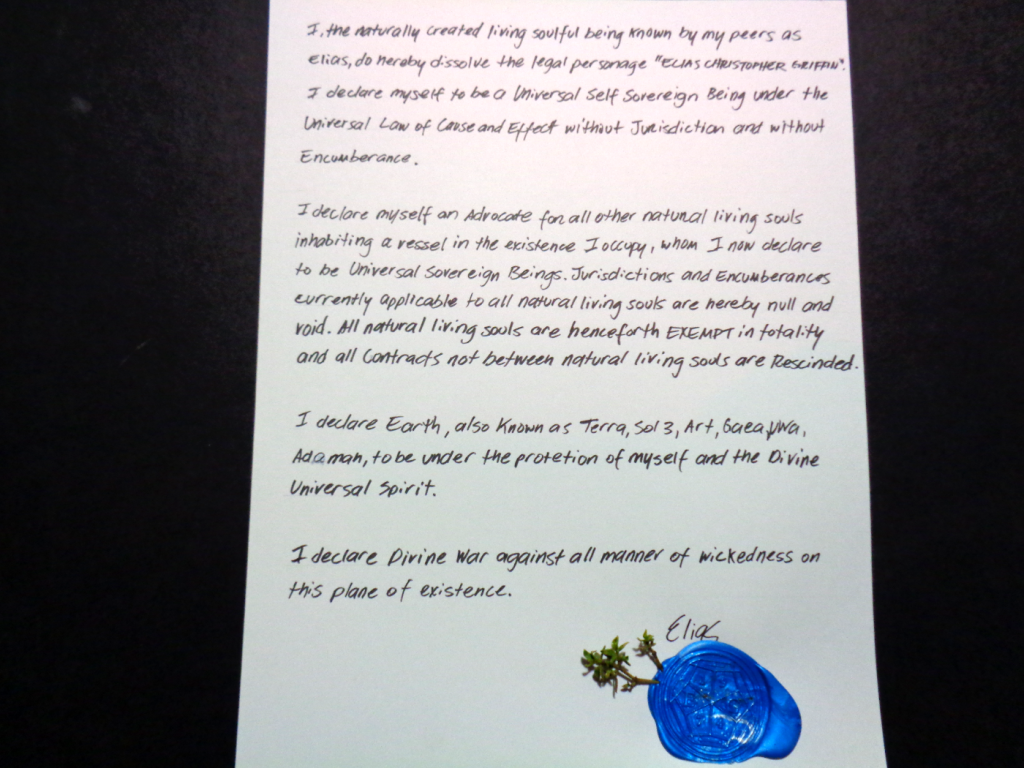 I, the naturally created living soulful being known by my peers as
Elias, do hereby dissolve the legal personage "ELIAS CHRISTOPHER GRIFFIN".
I declare myself to be a Universal Self Sovereign Being under the
Universal Law of Cause and Effect without Jurisdiction and without
Encumberance.
I declare myself an Advocate for all other natural living souls
inhabiting a vessel in the existence I occupy, whom I now declare
to be Universal Sovereign Beings. Jurisdictions and Encumberances
currently applicable to all natural living souls are hereby null and
void. All natural living souls are henceforth EXEMPT in totality
and all Contracts not between natural living souls are Rescinded.
I declare Earth, also known as Terra, Sol 3, Art, Gaea,
Adaman, to be under the protetion of myself and the Divine
Universal Spirit.
I declare Divine War against all manner of wickedness on
this plane of existence.
Elias